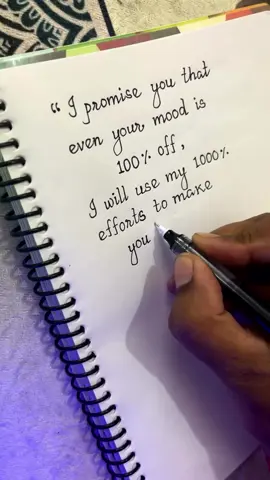 “ I promise you that
even your mood is
100% off,
I will use my 1000%
efforts to make
you